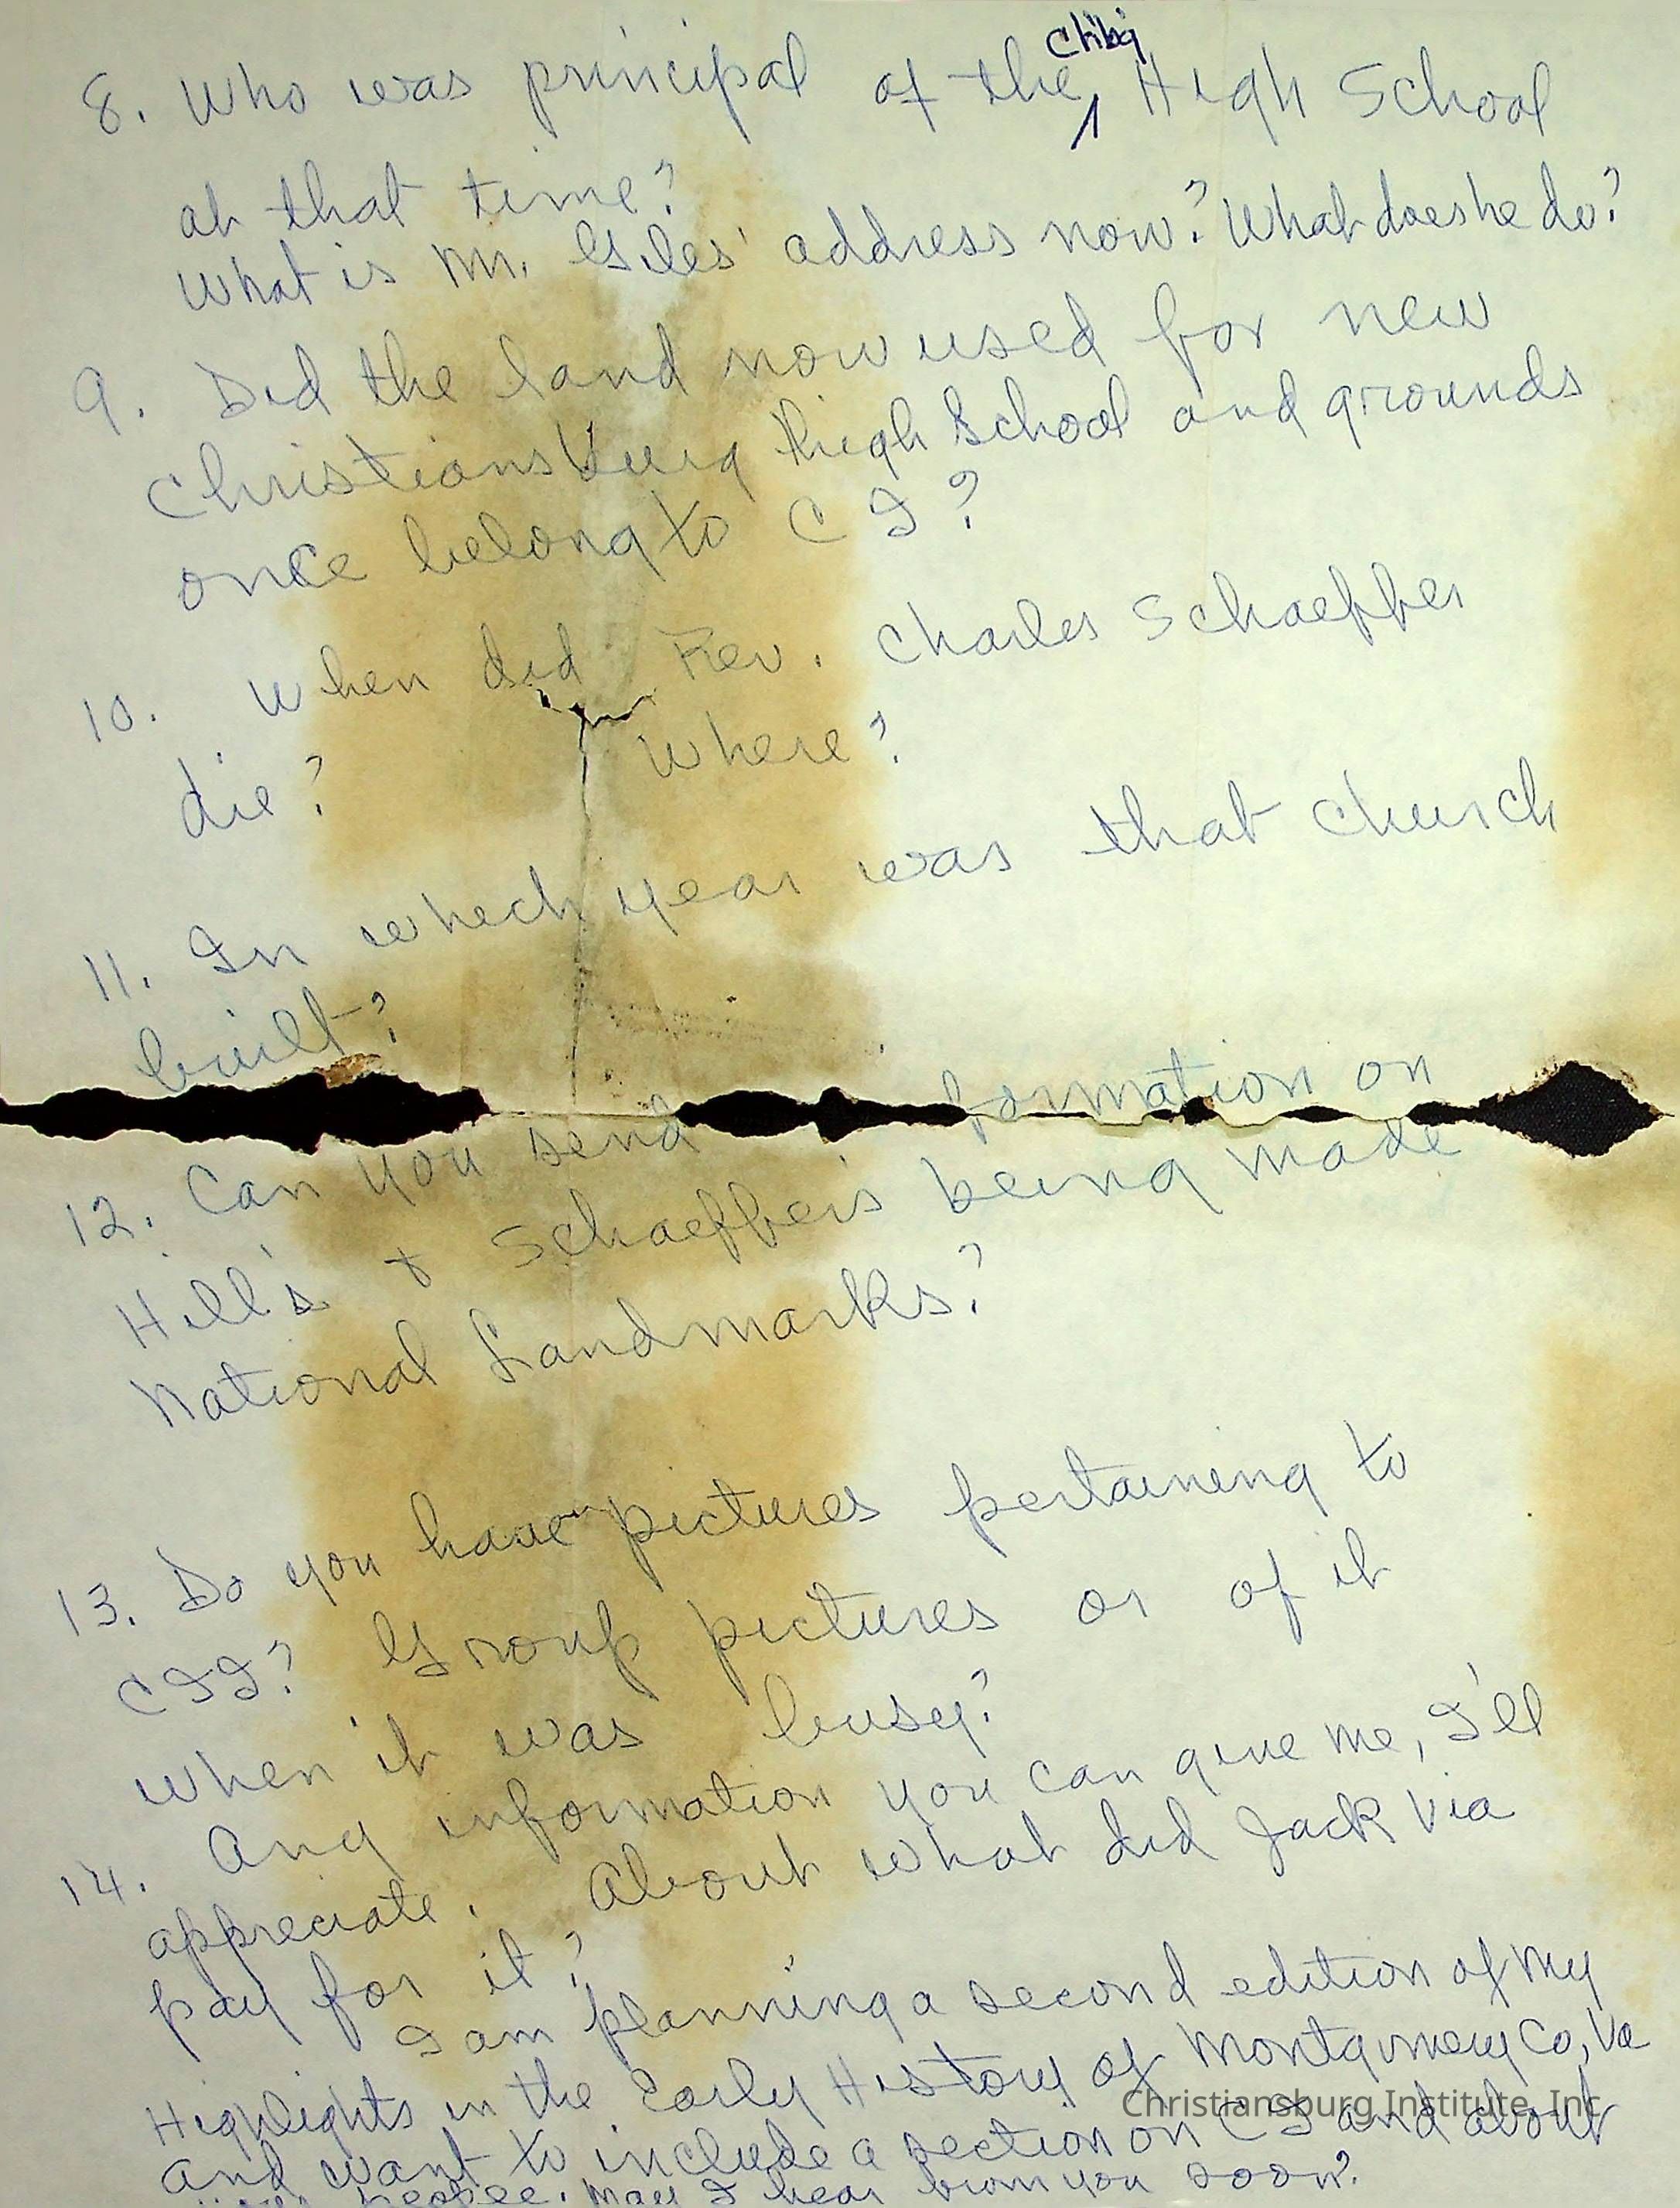 8. Who was principal of the High School
at that time?
What is Mr. Giles' address now? What does he do?
9. Did the land now used for new
Christiansburg High School and grounds
once belong to C I?
10. When did Rev. Charles Schaeffer
die? Where?
11. In which year was that church
built?
12. Can you send formation on
Hill's & Schaeffer's being made
National Landmarks?
13. Do you have pictures pertaining to
CII? Group pictures or of it
when it was busy?
14. Any information you can give me, I'll
appreciate. About what did Jack Via
pay for it?
I am planning a second edition of my
Highlights in the Early History of Montgomery Co, Va
Christiansburg Institute, Inc.
and want to include a section on CI and about
people. May I hear from you soon?